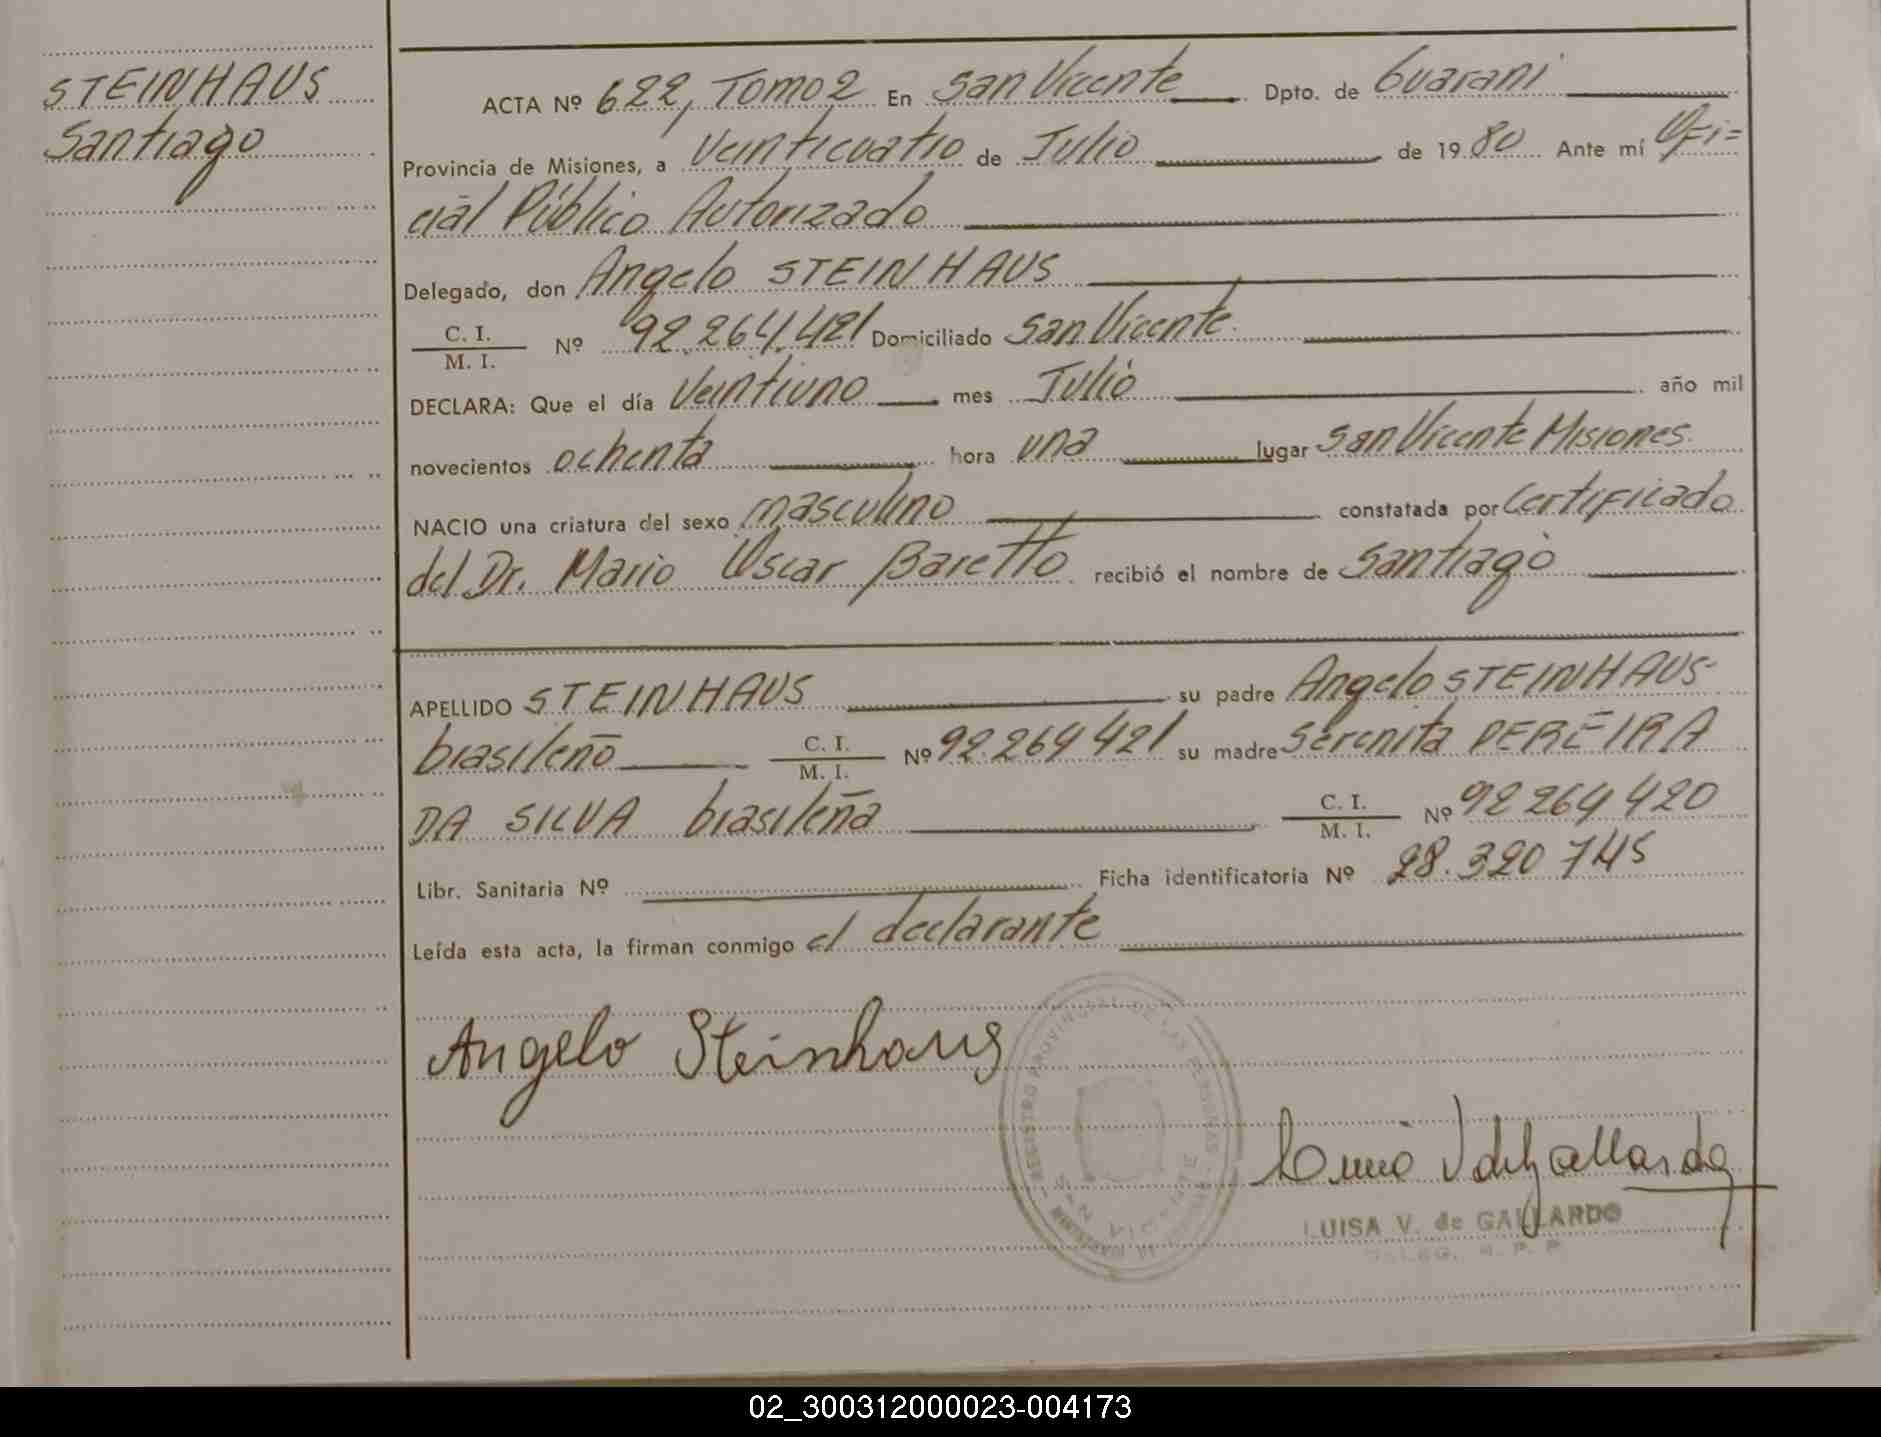 STEINHAUS
Santiago
ACTA Nº 622, Tomo 2 En San Vicente Dpto. de Guarani
Provincia de Misiones, a Veinticuatro de Julio de 1980 Ante mí Ofi=
cial Público Autorizado
Delegado, don Angelo STEINHAUS
C. I.
M. I.
Nº 92.264.421 Domiciliado San Vicente
DECLARA: Que el día Veintiuno mes Julio año mil
novecientos ochenta hora una lugar San Vicente Misiones
NACIO una criatura del sexo masculino constatada por Certificado
del Dr. Mario Oscar Baretto recibió el nombre de Santiago
APELLIDO STEINHAUS su padre Angelo STEINHAUS
brasileño C. I. M. I. Nº 92.264 421 su madre Serenita PEREIRA
DA SILVA brasileña C. I. M. I. Nº 92 264 420
Libr. Sanitaria Nº Ficha identificatoria Nº 28.320 745
Leída esta acta, la firman conmigo el declarante
Angelo Steinhaus
REGISTRO PROVINCIAL DE LAS PERSONAS
LUISA V. de GALLARDO
DELEG. R. P. P.
02_300312000023-004173